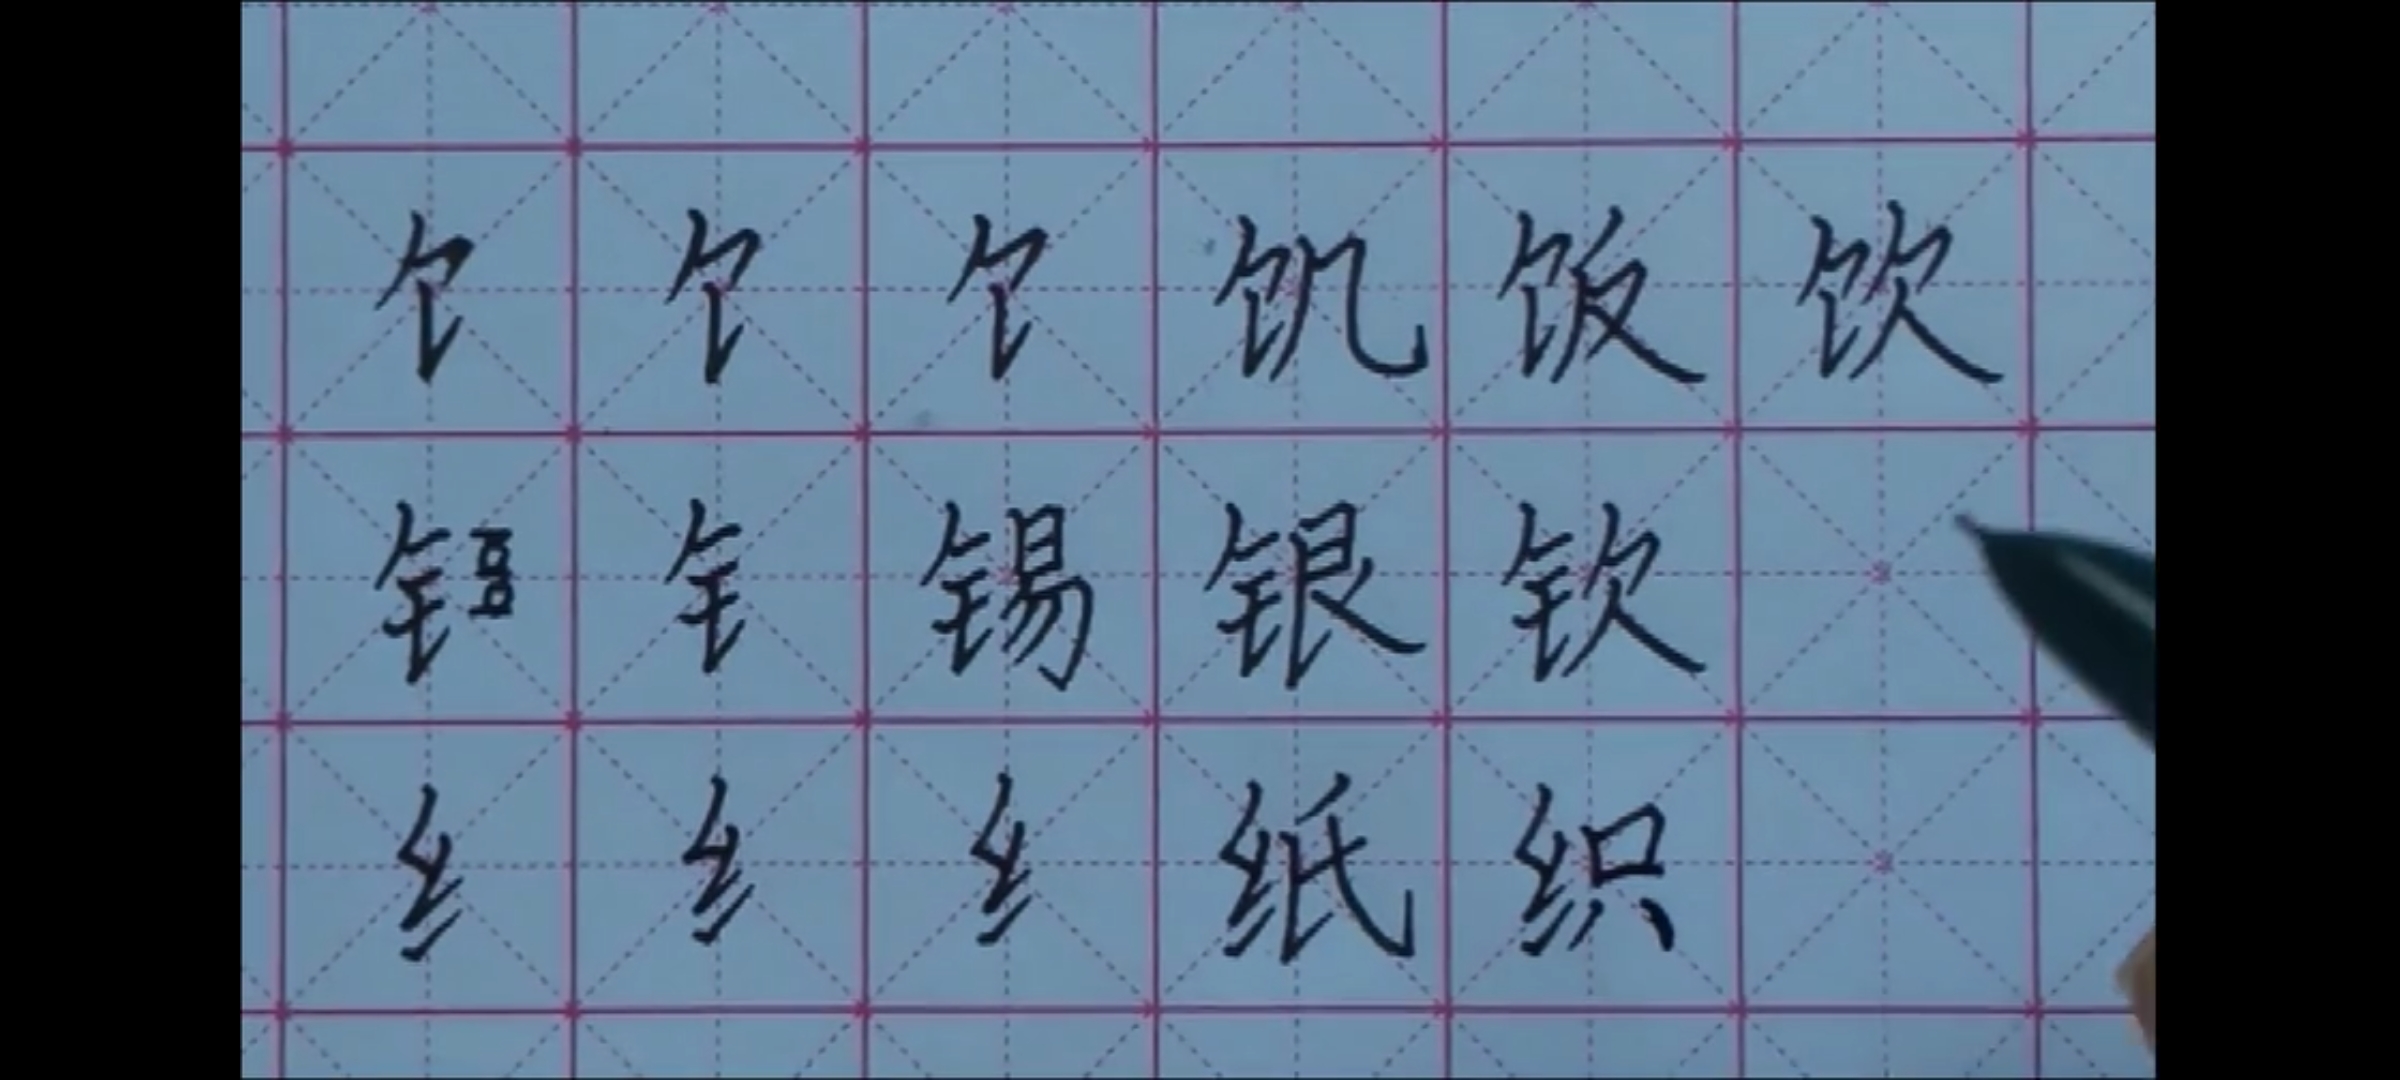 饣 饣 饣 饥 饭 饮
钅 钅 锡 银 钦
纟 纟 纟 纸 织